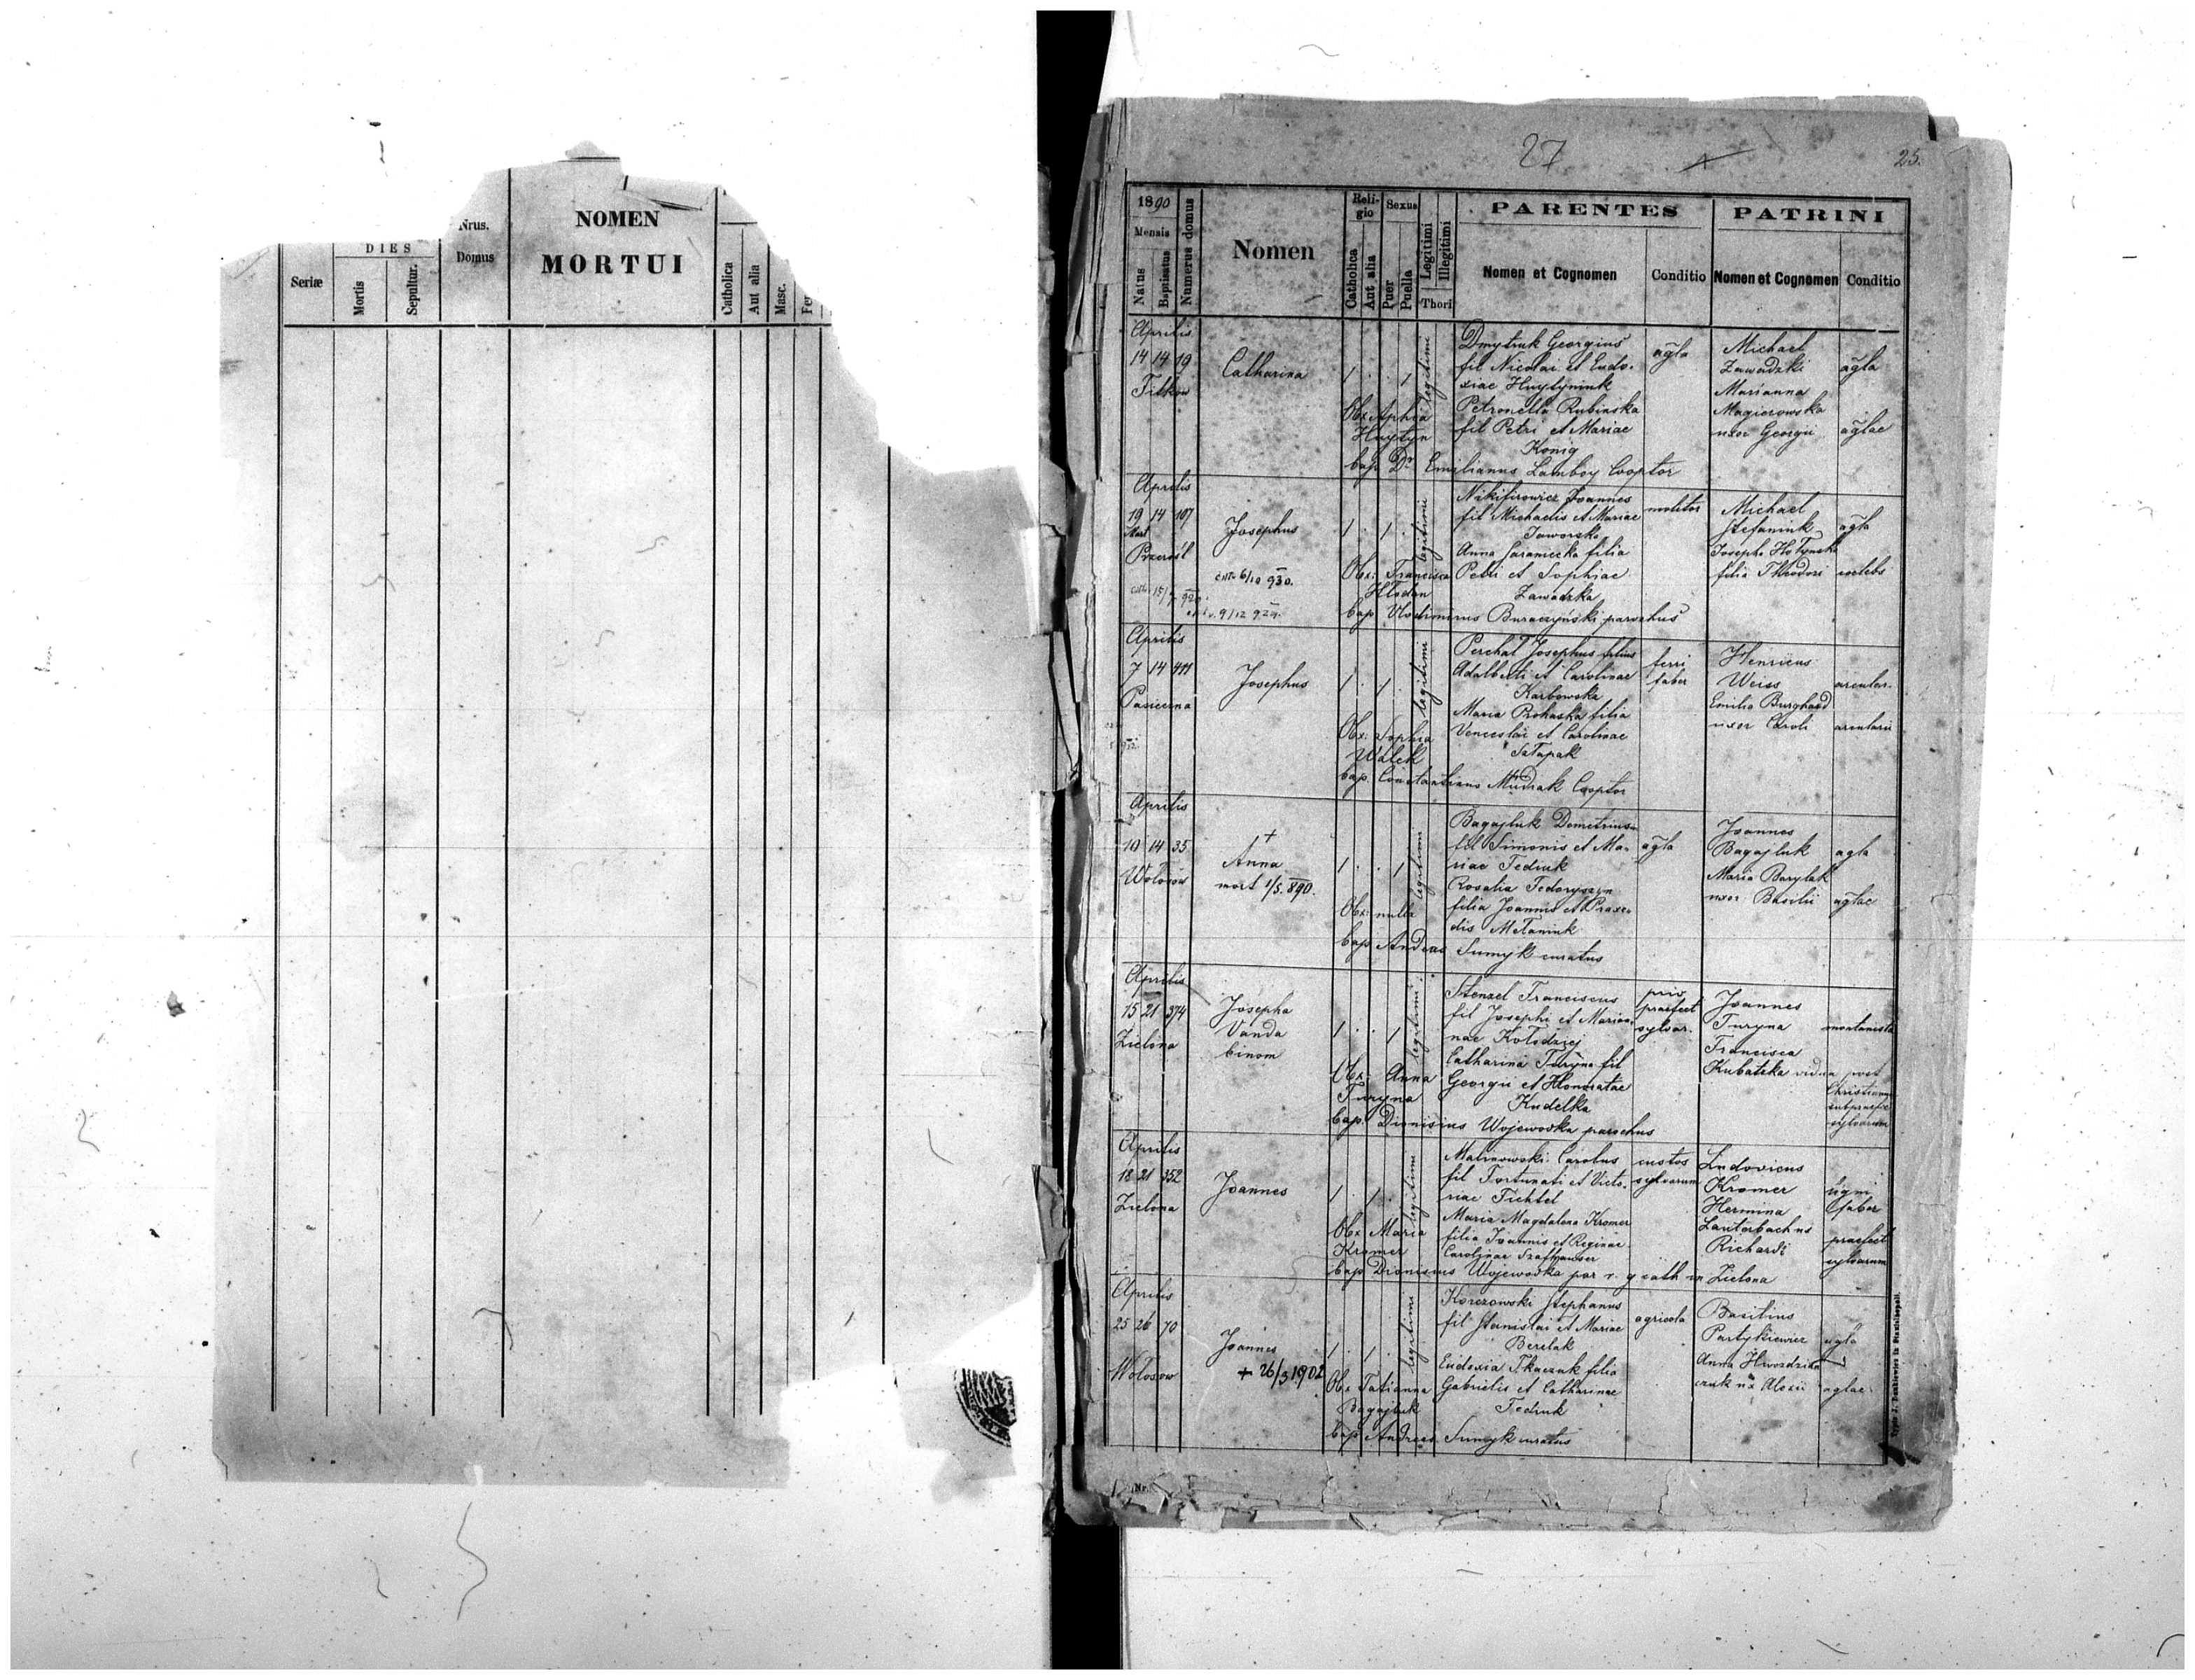 Seriæ
DIES
Mortis
Sepultur.
Nrus.
Domus
NOMEN
MORTUI
Catholica
Aut alia
Masc.
27
25.
1890
Mensis
Natus
Baptisatus
Numerus domus
Nomen
Religio
Catholica
Aut alia
Sexus
Puer
Puella
Legitimi
Illegitimi
Thori
PARENTES
Nomen et Cognomen
Conditio
PATRINI
Nomen et Cognomen
Conditio
Aprilis
14 14 19
Catharina
1 . . 1
legitimi
Dmytruk Georgius
fil Nicolai et Eudo-
xiae
Petronella Rubinska
fil Petri et Mariae
Konig
agla
Michael
Zawadzki
Marianna
Magierowska
uxor Georgii
agla
aglae
Obx
bap Dr Emilianus Lamboy Cooptor
Aprilis
19 14 107
Mart
Przerośl
Josephus
1 . 1 .
legitimi
Nikifirowicz Joannes
fil Michaelis et Mariae
Jaworska
Anna Jaraniecka filia
Petri et Sophiae
Zawadzka
molitor
Michael
Stefaniuk
Josepha
filia Theodori
agla
coelebs
6/10 930.
9/12 924.
Obx: Francisca
Hlodan
bap Vlodimirus Buraczyński parochus
Aprilis
7 14 411
Pasieczna
Josephus
1 . 1 .
legitimi
Perchal Josephus filius
Adalberti et Carolinae
Karbowska
Maria Prohaska filia
Venceslai et Carolinae
ferri
faber
Henricus
Weiss
Emilia Burghard
uxor Caroli
Obx: Sophia
Walek
bap. Constantinus Mudrak Cooptor
Aprilis
10 14 35
Wołosów
+
Anna
mort 1/5. 890.
1 . . 1
legitimi
Bagajluk Demetrius
fil Simonis et Ma-
riae Fediuk
Rosalia Fedoryszyn
filia Joannis et Praxe-
dis Melaniuk
agla
Joannes
Bagajluk
Maria Barylak
uxor Basilii
agla
aglae
Obx: nulla
bap Andreas Sumyk curatus
Aprilis
15 21 374
Zielona
Josepha
Vanda
binom
1 . . 1
legitimi
Stenzel Franciscus
fil Josephi et Marian-
nae Kołodziej
Catharina Turyna fil
Georgii et Honoratae
Kudelka
priv
praefect
sylvar.
Joannes
Turyna
Francisca
Kubatzka vidua post
Christianum
subpraefec
sylvarum
montanista
Obx: Anna
Turyna
bap. Dionisius Wojewodka parochus
Aprilis
18 21 352
Zielona
Joannes
1 . 1 .
legitimi
Malinowski Carolus
fil Fortunati et Victo-
riae Fichtel
Maria Magdalena Kromer
filia Joannis et Reginae
Carolinae Szafhauser
custos
sylvarum
Ludovicus
Kromer
Hermina
Lauterbach ux
Richardi
ligni
faber
praefect
sylvarum
Obx Maria
Kromer
bap Dionisius Wojewodka par r. g cath in Zielona
Aprilis
25 26 70
Wołosów
Joannes
+ 26/3 1902
1 . 1 .
legitimi
Korczowski Stephanus
fil Stanislai et Mariae
Berelak
Eudoxia Tkaczuk filia
Gabrielis et Catharinae
Fediuk
agricola
Basilius
Partykiewicz
Anna Hwozdzi
czuk ux Alexii
agla
aglae
Obx Tatianna
Bagajluk
bap Andreas Sumyk curatus
Nr.